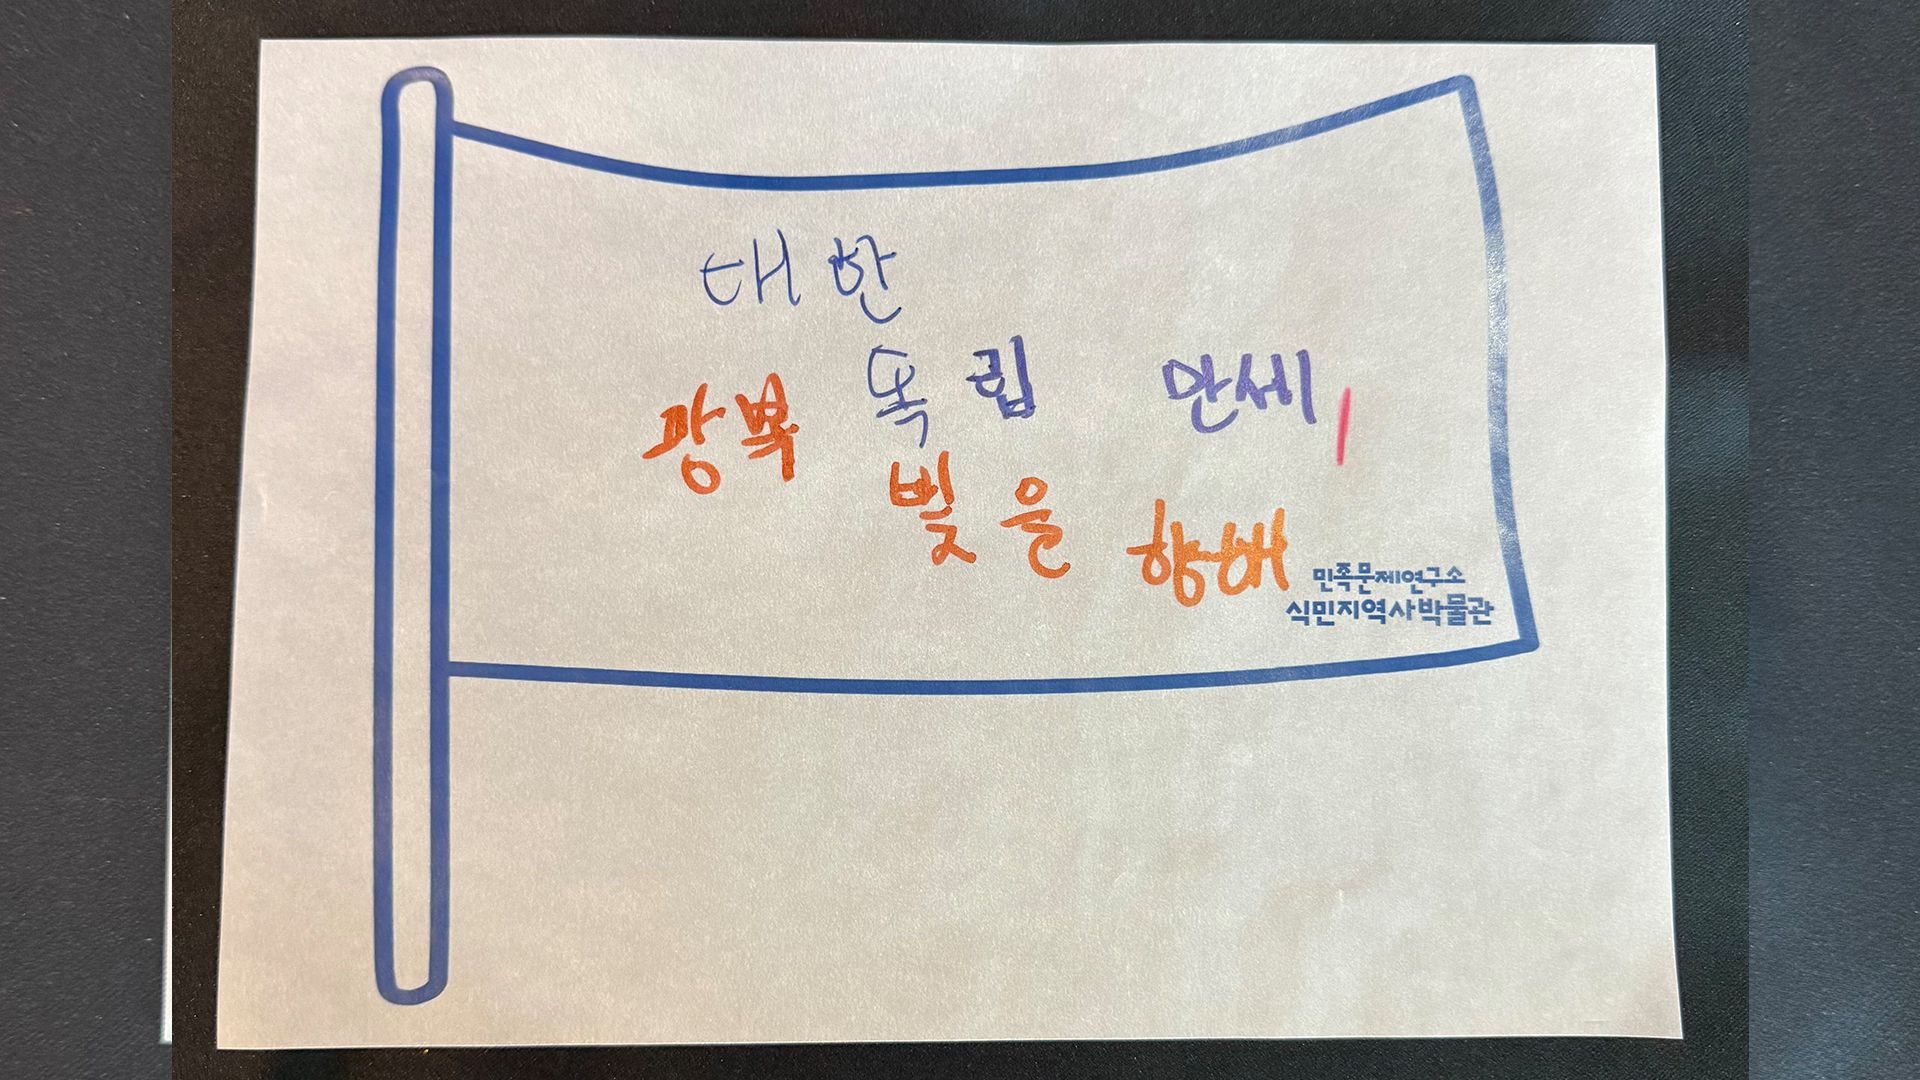 대한
독립 만세!
광복
빛을 향해
민족문제연구소
식민지역사박물관